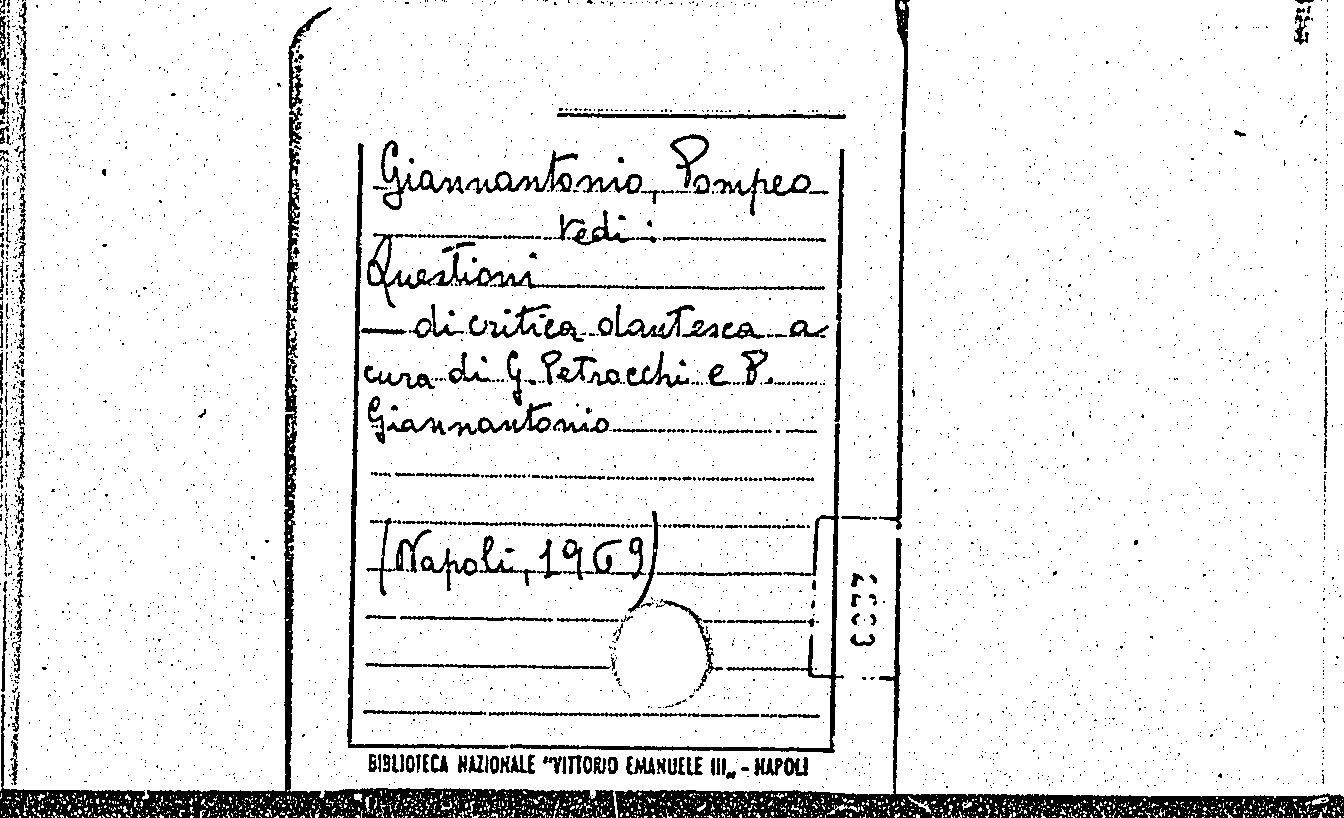 Giannantonio, Pompeo
vedi :
Questioni
— di critica dantesca a
cura di G. Petrocchi e P.
Giannantonio
(Napoli, 1969)
BIBLIOTECA NAZIONALE "VITTORIO EMANUELE III„ - NAPOLI